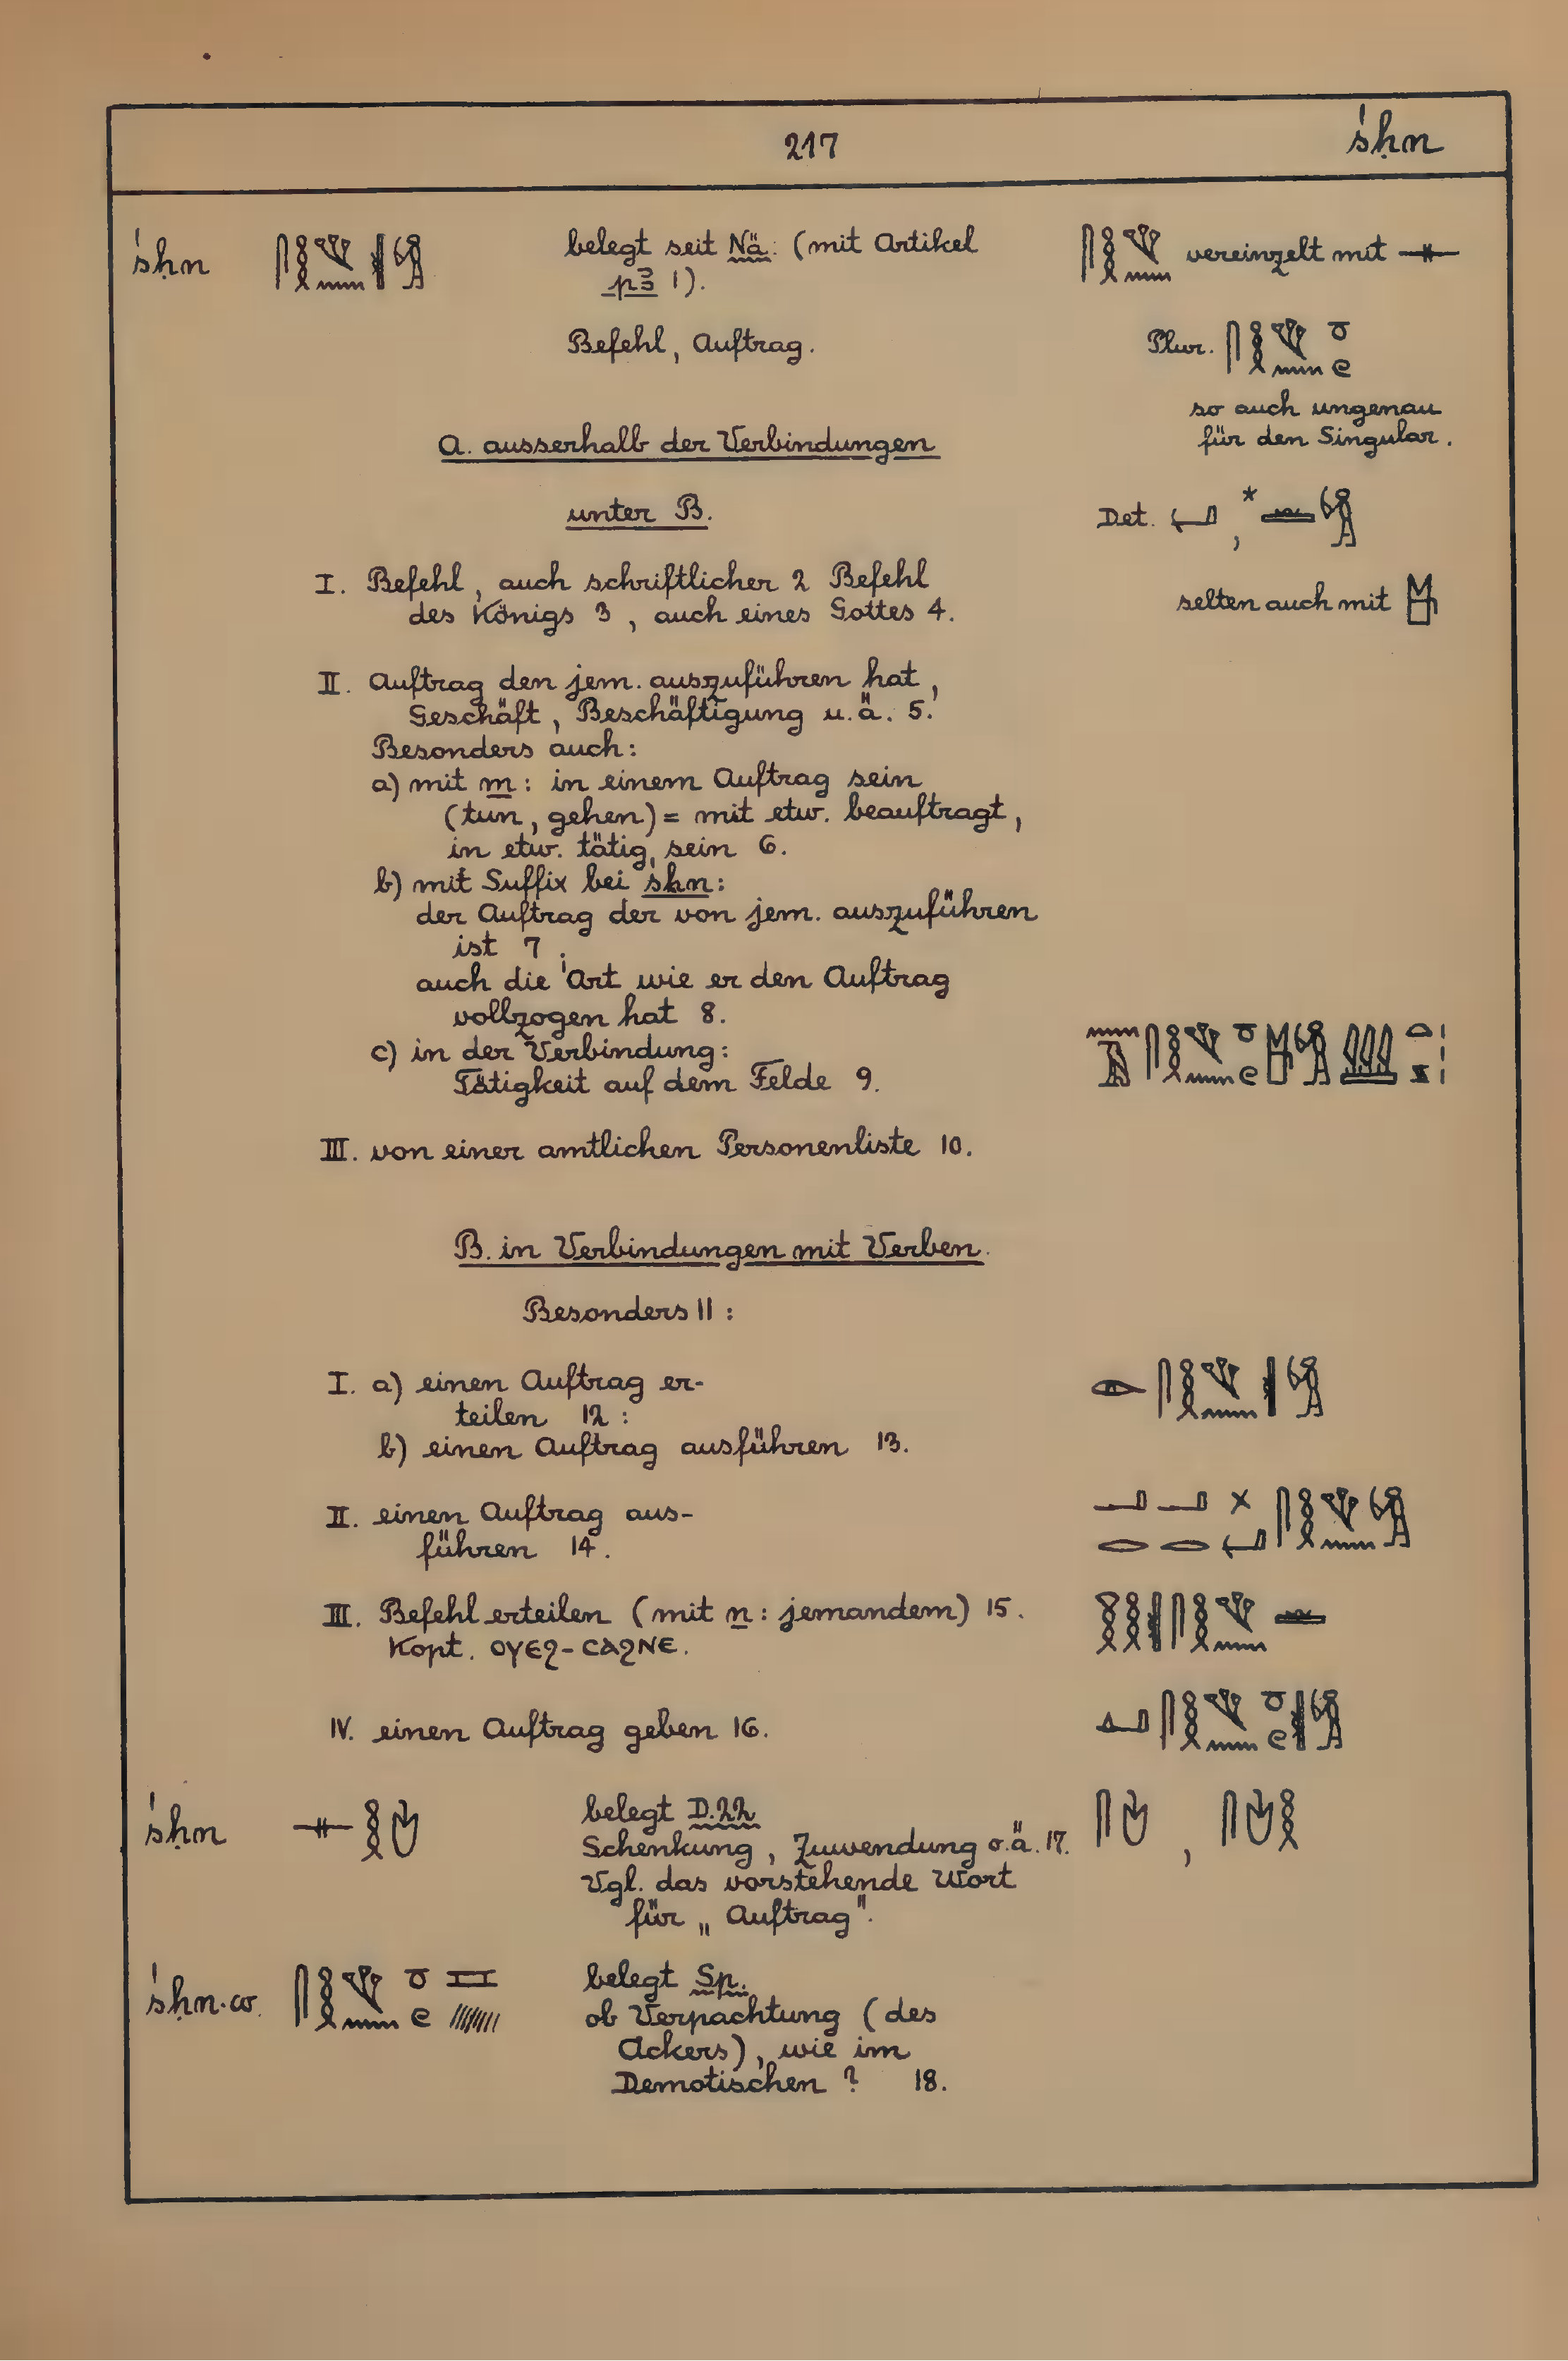 217
śḥn
śḥn
belegt seit Nä: (mit Artikel
pꜣ 1).
vereinzelt mit
Befehl, Auftrag.
Plur.
so auch ungenau
für den Singular.
A. ausserhalb der Verbindungen
unter B.
Det.
I. Befehl, auch schriftlicher 2 Befehl
des Königs 3, auch eines Gottes 4.
selten auch mit
II. Auftrag den jem. auszuführen hat,
Geschäft, Beschäftigung u.ä. 5.
Besonders auch:
a) mit m: in einem Auftrag sein
(tun, gehen) = mit etw. beauftragt,
in etw. tätig sein 6.
b) mit Suffix bei śḥn:
der Auftrag der von jem. auszuführen
ist 7.
auch die Art wie er den Auftrag
vollzogen hat 8.
c) in der Verbindung:
Tätigkeit auf dem Felde 9.
III. von einer amtlichen Personenliste 10.
B. in Verbindungen mit Verben.
Besonders 11:
I. a) einen Auftrag er-
teilen 12:
b) einen Auftrag ausführen 13.
II. einen Auftrag aus-
führen 14.
III. Befehl erteilen (mit n: jemandem) 15.
Kopt. ⲟⲩⲉϩ-ⲥⲁϩⲛⲉ.
IV. einen Auftrag geben 16.
śḥn
belegt D.22
Schenkung, Zuwendung o.ä. 17.
Vgl. das vorstehende Wort
für „Auftrag".
śḥn·w
belegt Sp.
ob Verpachtung (des
Ackers), wie im
Demotischen? 18.